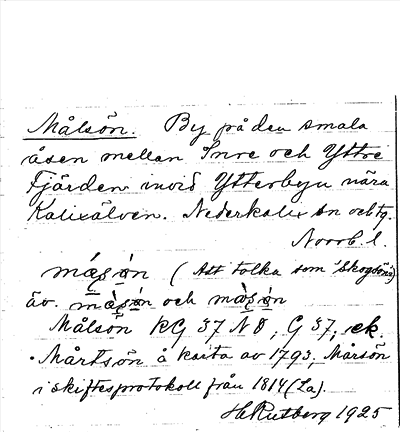 Målsön. By på den smala
åsen mellan Inre och Yttre
Fjärden invid Ytterbyn nära
Kalixälven. Nederkalix sn och tg.
Norrb. l.
(Att tolka som "Skogsön")
äv. och
Målsön RG 37 N 8, G 37, ek.
Mårtsön å karta av 1793; Mårsön
i skiftesprotokoll från 1814 (La).
1925